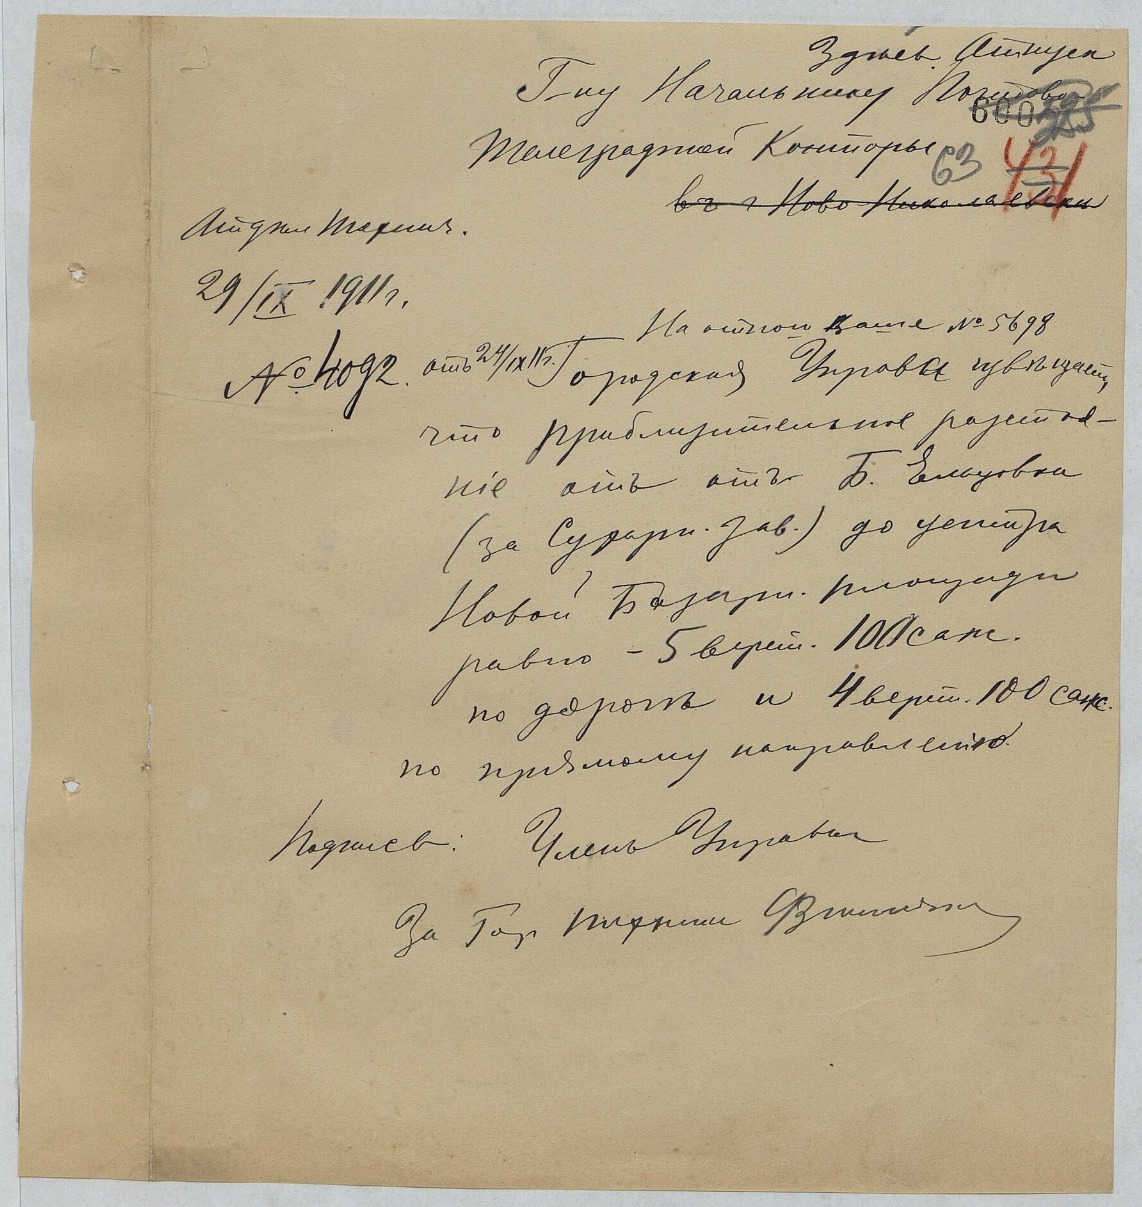 Здѣсь. Отпускъ
Г-ну Начальнику Почтово
600
Телеграфной Конторы
63
431
въ г Ново-Николаевскъ
Отдѣл Технич.
29/IX 1911 г.
На отнош Ваше № 5698
№ 4092. отъ 24/IX 11 г. Городская Управа извѣщаетъ,
что приблизительное разстоя-
ніе отъ отъ Б. Ельцовки
(за Сухарн. зав.) до центра
Новой Базарн. площади
равно – 5 верст. 100 саж.
по дорогѣ и 4 верст. 100 саж.
по прямому направленію.
Подписев: Членъ Управы
За Гор Техника